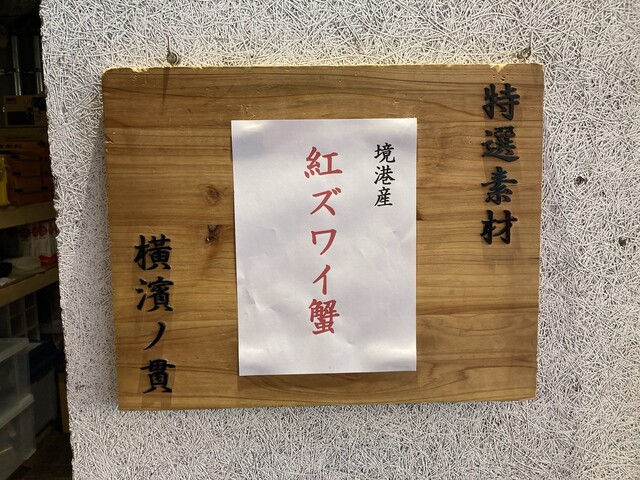 特選素材
境港産
紅ズワイ蟹
横濱ノ貫